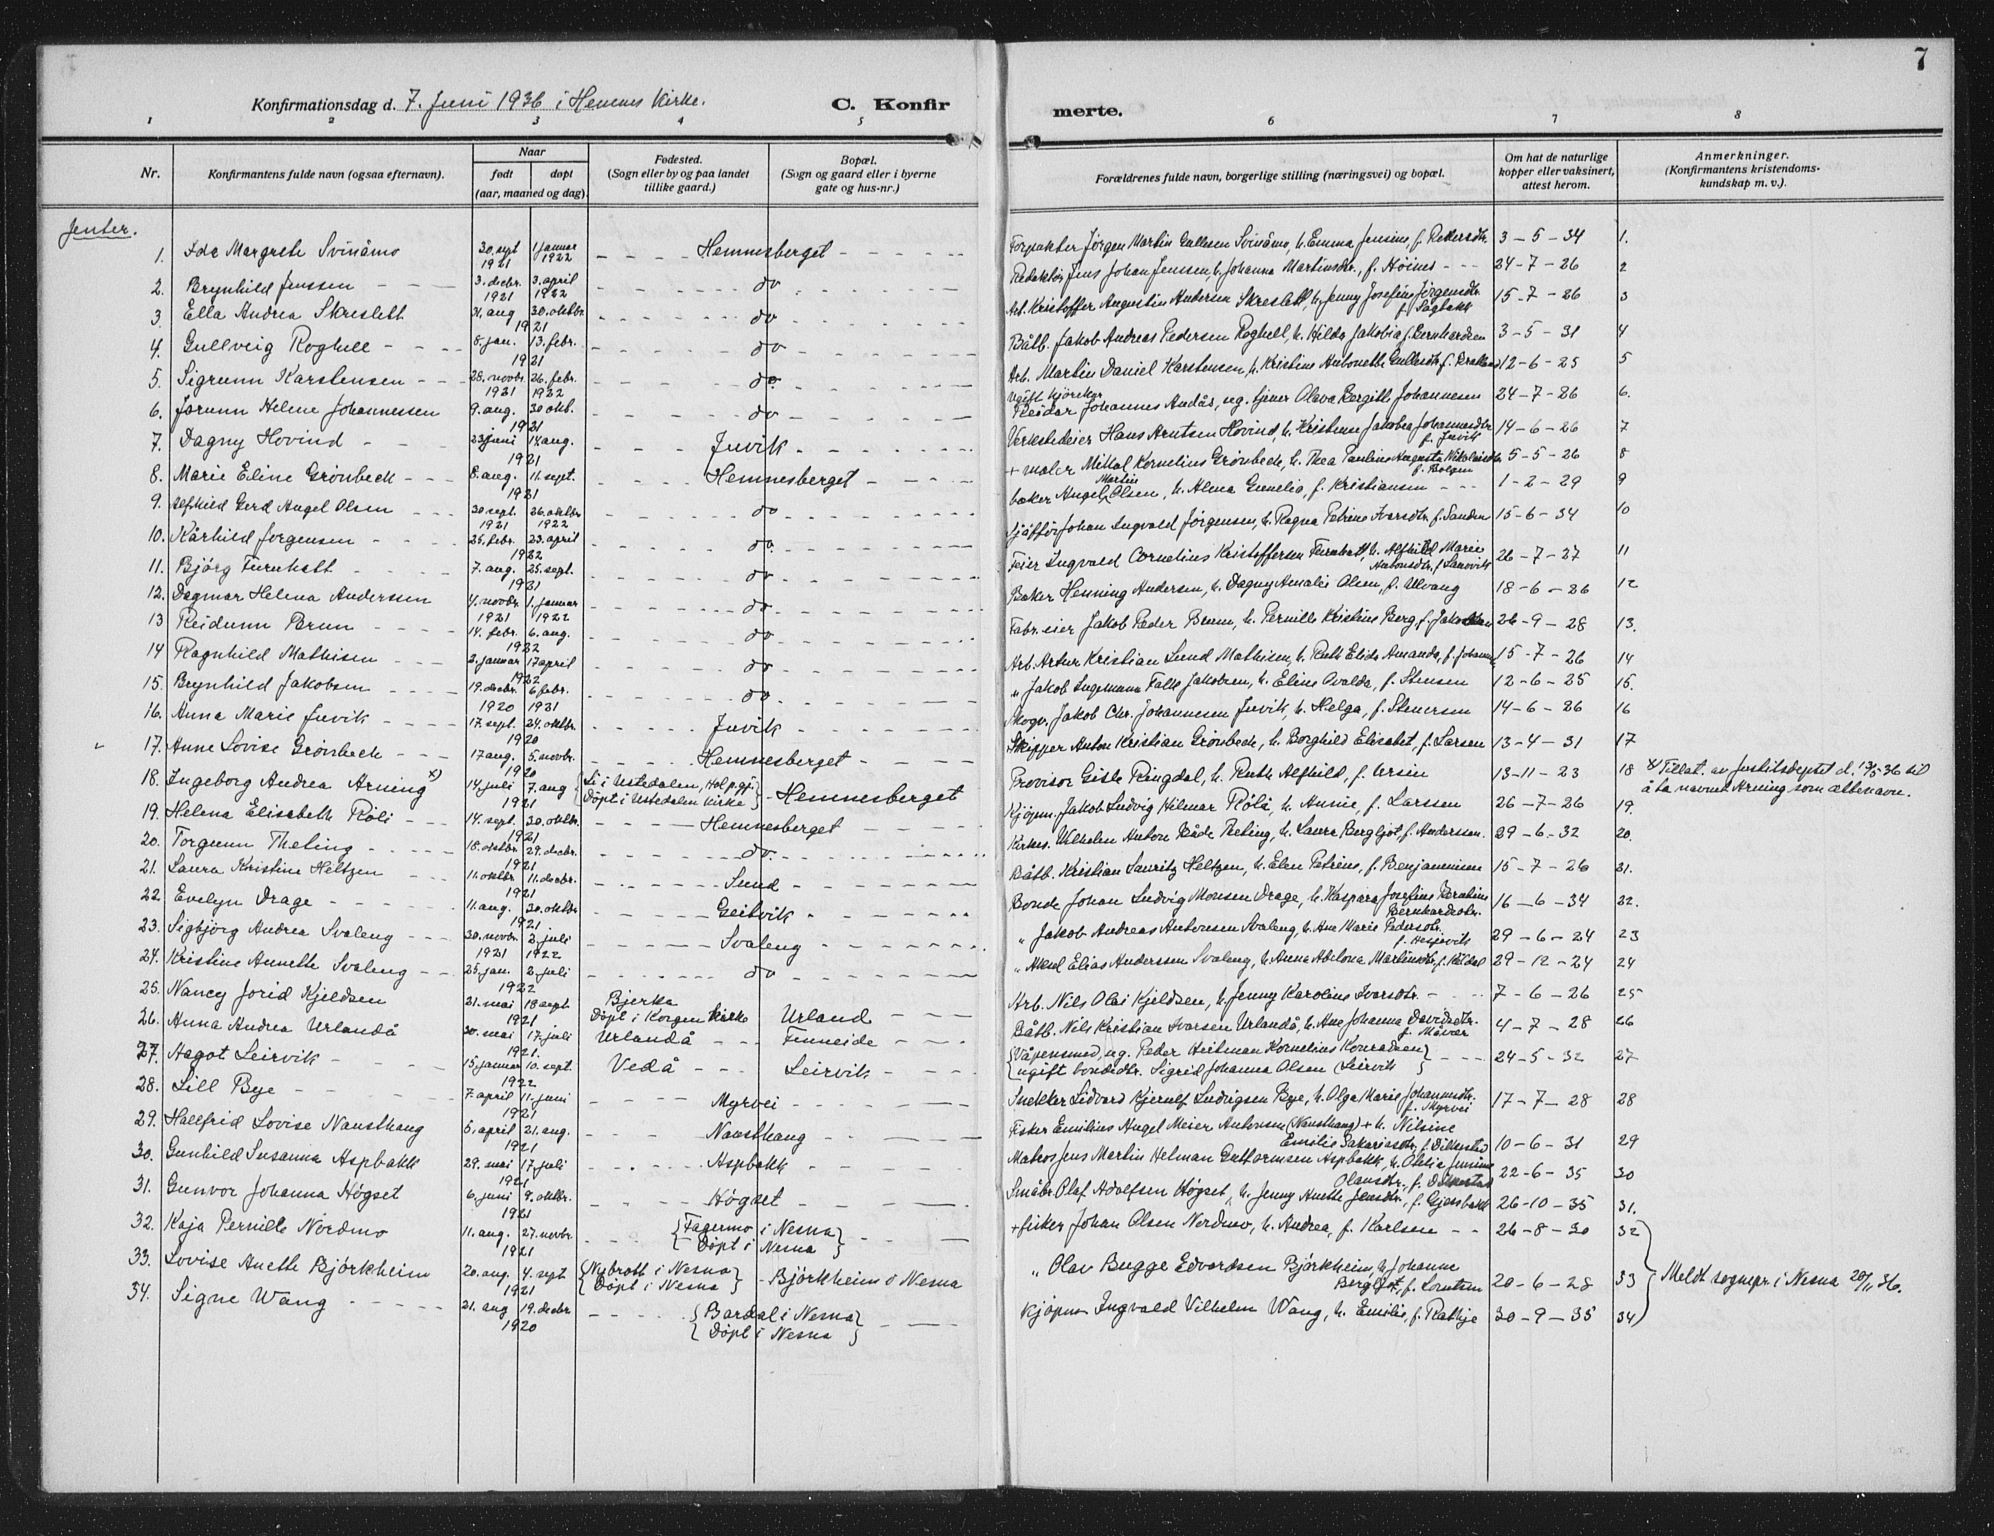 7
Konfirmationsdag d. 7. Juni 1936 i Hemnes Kirke. C. Konfir merte.
1 2 3 4 5 6 7 8
Nr. Konfirmantens fulde navn (ogsaa efternavn). Naar født døpt (aar, maaned og dag). Fødested. (Sogn eller by og paa landet tillike gaard.) Bopæl. (Sogn og gaard eller i byerne gate og hus-nr.) Forældrenes fulde navn, borgerlige stilling (næringsvei) og bopæl. Om hat de naturlige kopper eller vaksinert, attest herom. Anmerkninger. (Konfirmantens kristendoms- kundskap m. v.).
Jenter.
1. Ida Margrete Svinåmo 30. sept 1921 1 januar 1922 Hemnesberget Forpakter Jörgen Martin Svinåmo, h. Emma Jensine, f. Pettersdtr. 3-5-34 1.
2. Brynhild Jenssen 3. decbr. 1921 3. april 1922 do Redaktör Jens Johan Jenssen, h. Johanna Martinsdtr., f. Höines 24-7-26 2
3. Ella Andrea Skreslett 21. aug 30. oktbr. 1921 do Arb. Kristoffer Augustin Andersen Skreslett, h. Jenny Josefine Jörgensdtr. f. Sagbakk 15-7-26 3
4. Gullveig Roghell 8. jan. 13. febr. 1921 do Båtb. Jakob Andreas Pedersen Roghell, h. Hilda Jakobia f. Bernhardsen 3-5-31 4
5. Sigrunn Karstensen 28. novbr. 1921 26. febr. 1922 do. Arb. Martin Daniel Karstensen, h. Kristine Antonette 12-6-25 5
6. Jorunn Helene Johannessen 9. aug. 30 okt. 1921 do Ugift Reidar Johannes Andås, ug. tjener Olava Bergitte Johannesen 24-7-26 6.
7. Dagny Hovind 23 juni 14. aug. 1921 Juvik Verkstedeier Hans Arntsen Hovind, h. Kristense Jakobea Johannesdtr. f. Juvik 14-6-26 7
8. Marie Eline Grönbeck 8. aug. 11. sept. 1921 Hemnesberget + maler Mikkal Kornelius Grönbeck, h. Thea Pauline Augusta Nikolaisdtr. f. Bolgen 5-5-26 8
9. Alfhild Gerd Angel Olsen 30. sept. 1921 26. oktbr 1922 do baker Angel Martin Olsen, h. Alma Gunelia, f. Kristiansen 1-2-29 9
10. Kårhild Jörgensen 25. febr. 23. april 1922 do. Sjåfför Johan Ingvald Jörgensen, h. Ragna Petrine Ivarsdtr. f. Sanden 15-6-34 10
11. Björg Furuhatt 7. aug. 25. sept. 1921 do Feier Ingvald Cornelius Kristoffersen Furuhatt, h. Alfhild Marie Antonsdtr. f. Sandvik 26-7-27 11
12. Dagmar Helena Andersen 4. novbr. 1921 1. januar 1922 do. Baker Henning Andersen, h. Dagny Amalie Olsen, f. Ulvang 18-6-26 12
13 Reidunn Brun 14. febr. 6. aug. 1922 do Fabr. eier Jakob Peder Brun, h. Pernille Kristine Berg, f. Jakobsen 26-9-28 13.
14 Ragnhild Mathisen 2. januar 17 april 1922 do Arb. Artur Kristian Lund Mathisen, h. Ruth Elida Amanda, f. 15-7-26 14
15. Brynhild Jakobsen 19. decbr. 1920 6 febr. 1921 do " Jakob Ingemann Falk Jakobsen, h. Eline Ovalda, f. Stensen 12-6-25 15.
16. Anna Marie Juvik 17. sept. 24. oktbr. 1920 Juvik Skogv. Jakob Chr. Johannesen Juvik, h. Helga, f. Stenersen 14-6-26 16
17. Anne Lovise Grönbeck 17 aug. 5. novbr. 1920 Hemnesberget Skipper Anton Kristian Grönbeck, h. Borghild Elisabet, f. Larsen 13-4-31 17
18. Ingeborg Andrea Arning x) 14. juli 7. aug 1921 {Li i Ustedalen, Hol p.gj. Döpt i Ustedalen kirke} Hemnesberget Provisor Gisle Ringdal, h. Ruth Alfhild, f. Ursin 13-11-23 18 x) Tillat. av Justitsdeptet d. 13/5 36 til å ta navnet Arning som ættenavn.
19. Helena Elisabeth Röli 14. sept. 30. oktbr. 1921 Hemnesberget Kjöpm. Jakob Ludvig Hilmar Röli, h. Annie, f. Larssen 26-7-26 19.
20. Torgunn Theting 18. oktbr. 29. decbr. 1921 do. Wilhelm Anton Theting, h. Laura Bergljot, f. Anderssen. 29-6-32 20.
21. Laura Kristine Heltzen 11. oktbr. 11. decbr. 1921 Sund Båtb. Kristian Lauritz Heltzen, h. Elen Petrine, f. Benjaminsen 15-7-26 21.
22. Evelyn Drage 11. aug. 30. oktbr 1921 Geitvik Bonde Johan Ludvig Monsen Drage, h. Kaspara Josefine Bernhardsdtr. 16-6-34 22.
23. Sigbjörg Andrea Svaleng 30. novbr. 1921 2. juli 1922 Svaleng " Jakob Andreas Antonsen Svaleng, h. Ane Marie Pedersdtr. 29-6-24 23
24. Kristine Annette Svaleng 25. jan. 2. juli 1922 do " Aksel Elias Anderssen Svaleng, h. Anna Abelona Martinsdtr. 29-12-24 24
25. Nancy Jorid Kjeldsen 21. mai 18 sept 1921 Bjerka Döpt i Korgen kirke Urland Arb. Nils Olai Kjeldsen, h. Jenny Karolius Ivarsdtr. 7-6-26 25
26. Anna Andrea Urlandå 30. mai 17. juli 1921. Urlandå Finneide Båtb. Nils Kristian Ivarsen Urlandå, h. Ane Johanna Davidsdtr. f. Måvær 4-7-28 26
27. Hagot Leirvik 15. januar 10. sept. 1922 Vedå Leirvik {Våpensmed, ug. Peder Heitman Kornelius Konradsen ugift bondedtr. Sigrid Johanna Olsen Leirvik} 24-5-32 27
28. Lill Bye 7. april 11. juni 1921 Myrvei Snekker Lidvard Hjernlf Ludvigsen Bye, h. Olga Marie Johannsdtr. f. Myrvei 17-7-28 28
29. Hallfrid Lovise Nausthaug 6. april 21. aug. 1921 Nausthaug Fisker Emilius Angel Meier Antonsen (Nausthaug) + h. Nilsine Emilie Sakariasdtr. f. Dilkestad 10-6-31 29
30. Gunhild Susanna Aspbakk 29. mai 17. juli 1921 Aspbakk Matros Jens Martin Helman Guttormsen Aspbakk, h. Otelie Jensine Olausdtr., f. Dilkestad 22-6-35 30
31. Gunvor Johanna Högset 6. juni 9. oktbr. 1921 Högset Småbr. Olaf Adolfsen Högset, h. Jenny Anette Jensdtr., f. Gjersbakk 26-10-35 31.
32. Kaja Pernille Nordmo 11. aug. 27. novbr. 1921 {Fagermo i Nesna Döpt i Nesna} + fisker Johan Olsen Nordmo, h. Andrea, f. Karlsen 26-8-30 32
33. Lovise Anette Björkheim 20. aug. 4. sept 1921 {Nybrott i Nesna Döpt i Nesna} Björkheim o Nesna " Olav Bugge Edvardsen Björkheim, h. Johanne Bergljot, f. Lorntsen 20-6-28 33 Meldt sognepr. i Nesna 20/11 36.
34. Signe Wang 21. aug 19. decbr 1920 {Bardal i Nesna Döpt i Nesna} Kjöpm Ingvald Vilhelm Wang, h. Emilie, f. Rathje 30-9-35 34